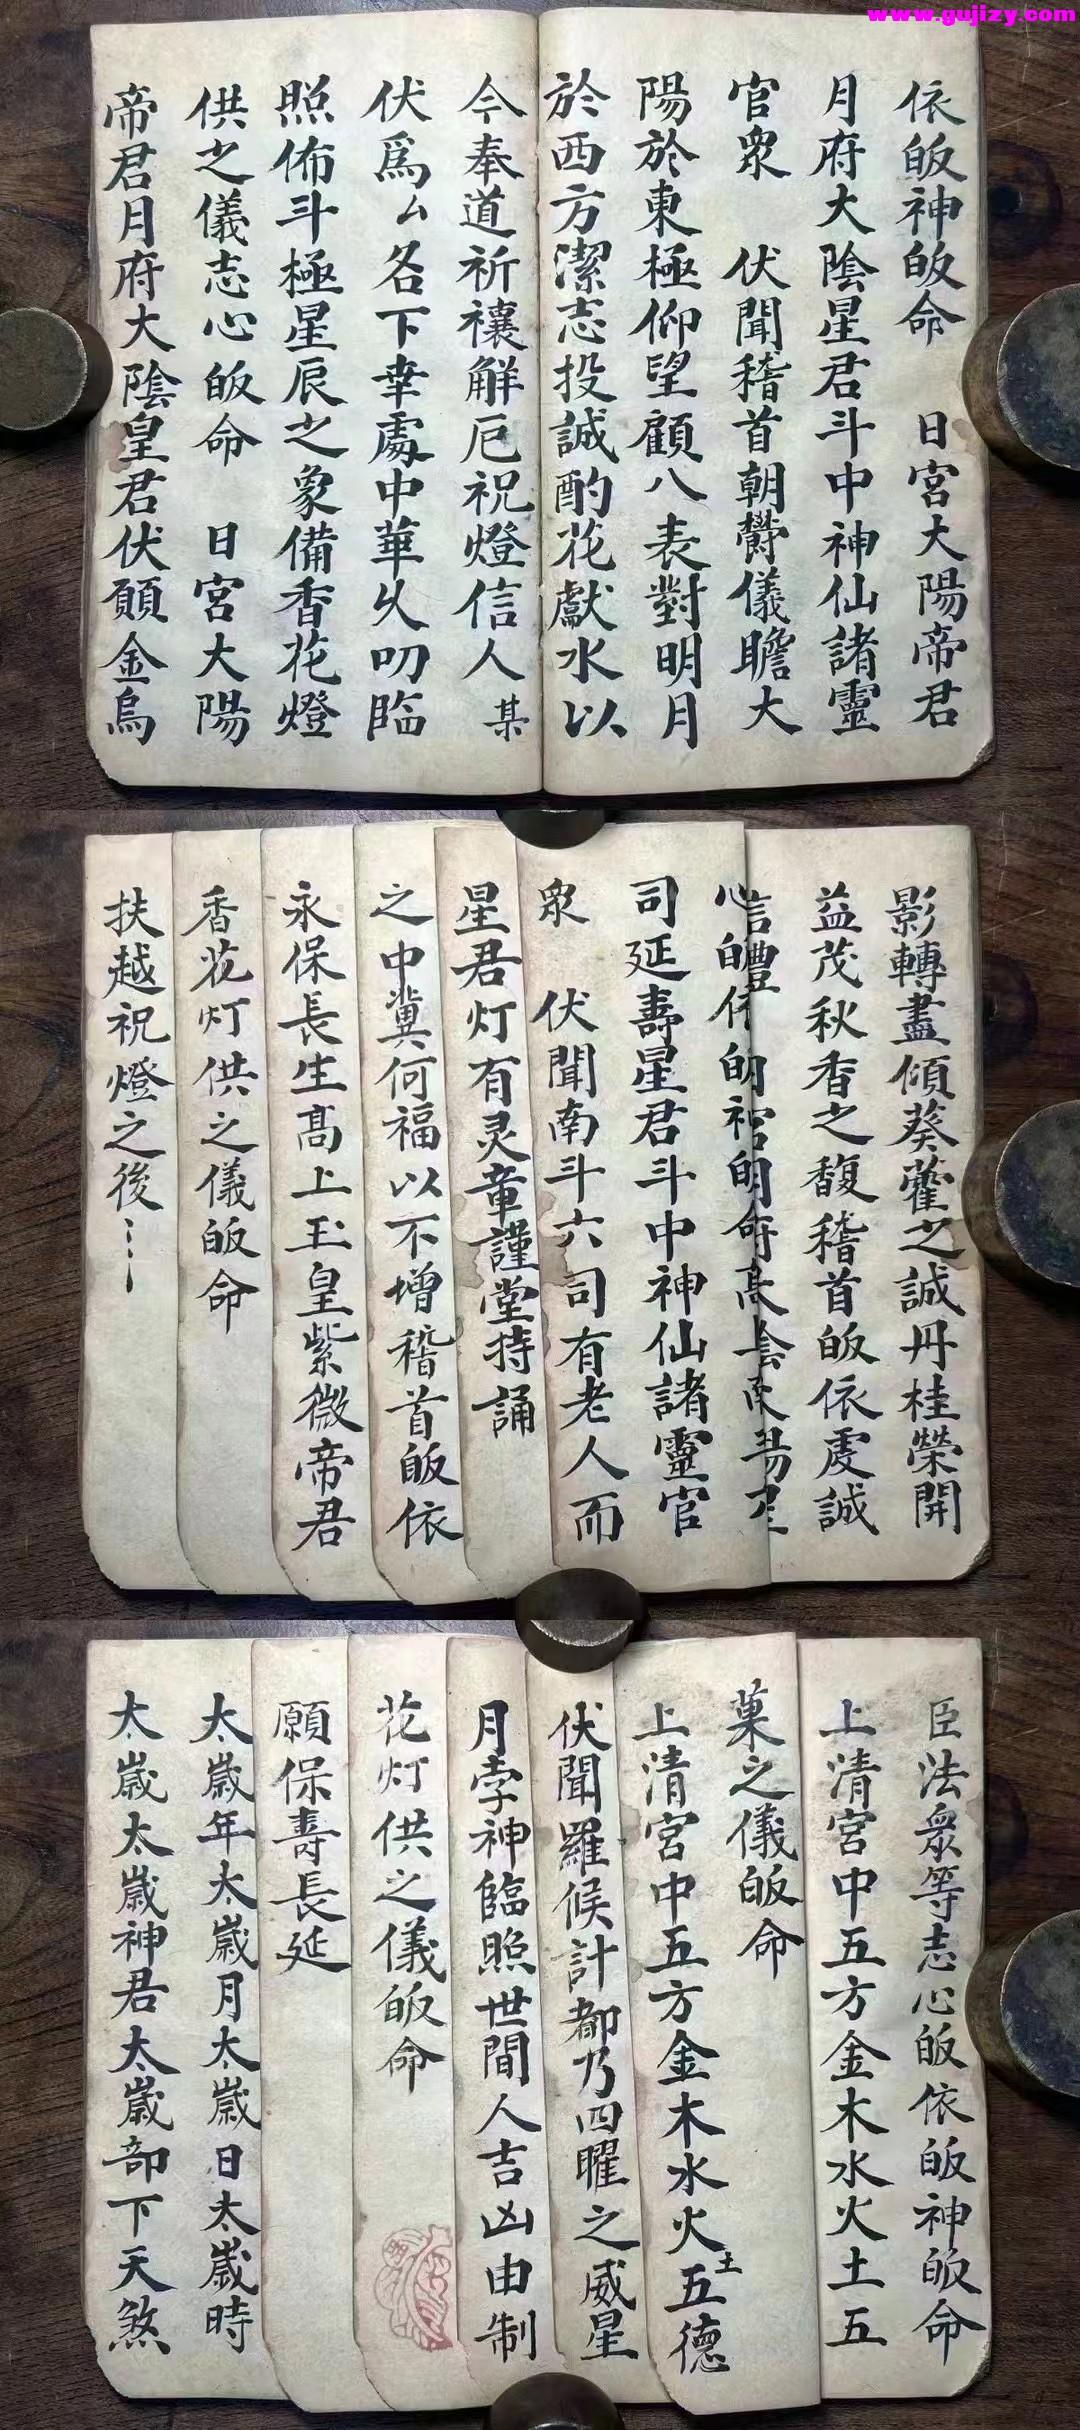 www.gujizy.com
依皈神皈命　日宮大陽帝君
月府大陰星君斗中神仙諸靈
官衆　伏聞稽首朝欝儀瞻大
陽於東極仰望顧八表對明月
於西方潔志投誠酌花獻水以
今奉道祈禳解厄祝燈信人某
伏爲厶名下幸處中華久叨臨
照佈斗極星辰之象備香花燈
供之儀志心皈命　日宮大陽
帝君月府大陰皇君伏願金烏
影轉盡傾葵藿之誠丹桂榮開
益茂秋香之馥稽首皈依虔誠
司延壽星君斗中神仙諸靈官
衆　伏聞南斗六司有老人而
星君灯有灵章謹堂持誦
之中冀何福以不增稽首皈依
永保長生髙上玉皇紫微帝君
香花灯供之儀皈命
扶越祝燈之後
臣法衆等志心皈依皈神皈命
上清宮中五方金木水火土五
菓之儀皈命
上清宮中五方金木水火土五德
伏聞羅候計都乃四曜之威星
月孛神臨照世間人吉凶由制
花灯供之儀皈命
願保壽長延
太歲年太歲月太歲日太歲時
太歲太歲神君太歲部下天煞